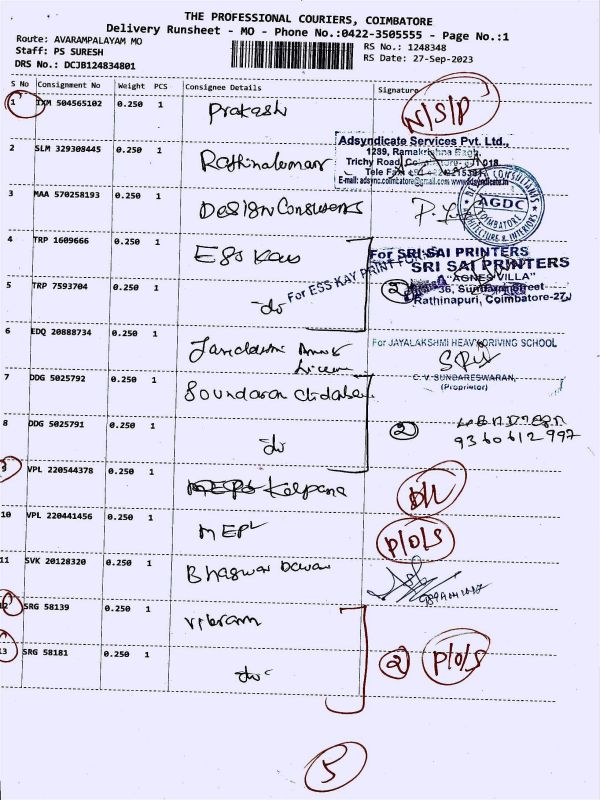 THE PROFESSIONAL COURIERS, COIMBATORE
Delivery Runsheet - MO - Phone No.:0422-3505555 - Page No.:1
Route: AVARAMPALAYAM MO
RS No.: 1248348
Staff: PS SURESH
RS Date: 27-Sep-2023
DRS No.: DCJB124834801
S No Consignment No Weight PCS Consignee Details Signature
1 IXM 504565102 0.250 1 Prakash N/S/P
Adsyndicate Services Pvt. Ltd.,
2 SLM 329308445 0.250 1
Trichy Road,
3 MAA 570258193 0.250 1 Design
AGDC
COIMBATORE
4 TRP 1609666 0.250 1 Ess Kay
For SRI SAI PRINTERS
SRI SAI PRINTERS
"AGNES VILLA"
For ESS KAY
5 TRP 7593704 0.250 1 do 2
36, Sundaram Street
Rathinapuri, Coimbatore-27
6 EDQ 20888734 0.250 1
For JAYALAKSHMI HEAVY DRIVING SCHOOL
C.V. SUNDARESWARAN,
(Proprietor)
7 DDG 5025792 0.250 1
8 DDG 5025791 0.250 1 do 2
9360612997
9 VPL 220544378 0.250 1 Kalpana D/L
10 VPL 220441456 0.250 1 MEPL P/O/S
11 SVK 20128320 0.250 1
12 SRG 58139 0.250 1 Vibram
13 SRG 58181 0.250 1 do 2 P/O/S
5